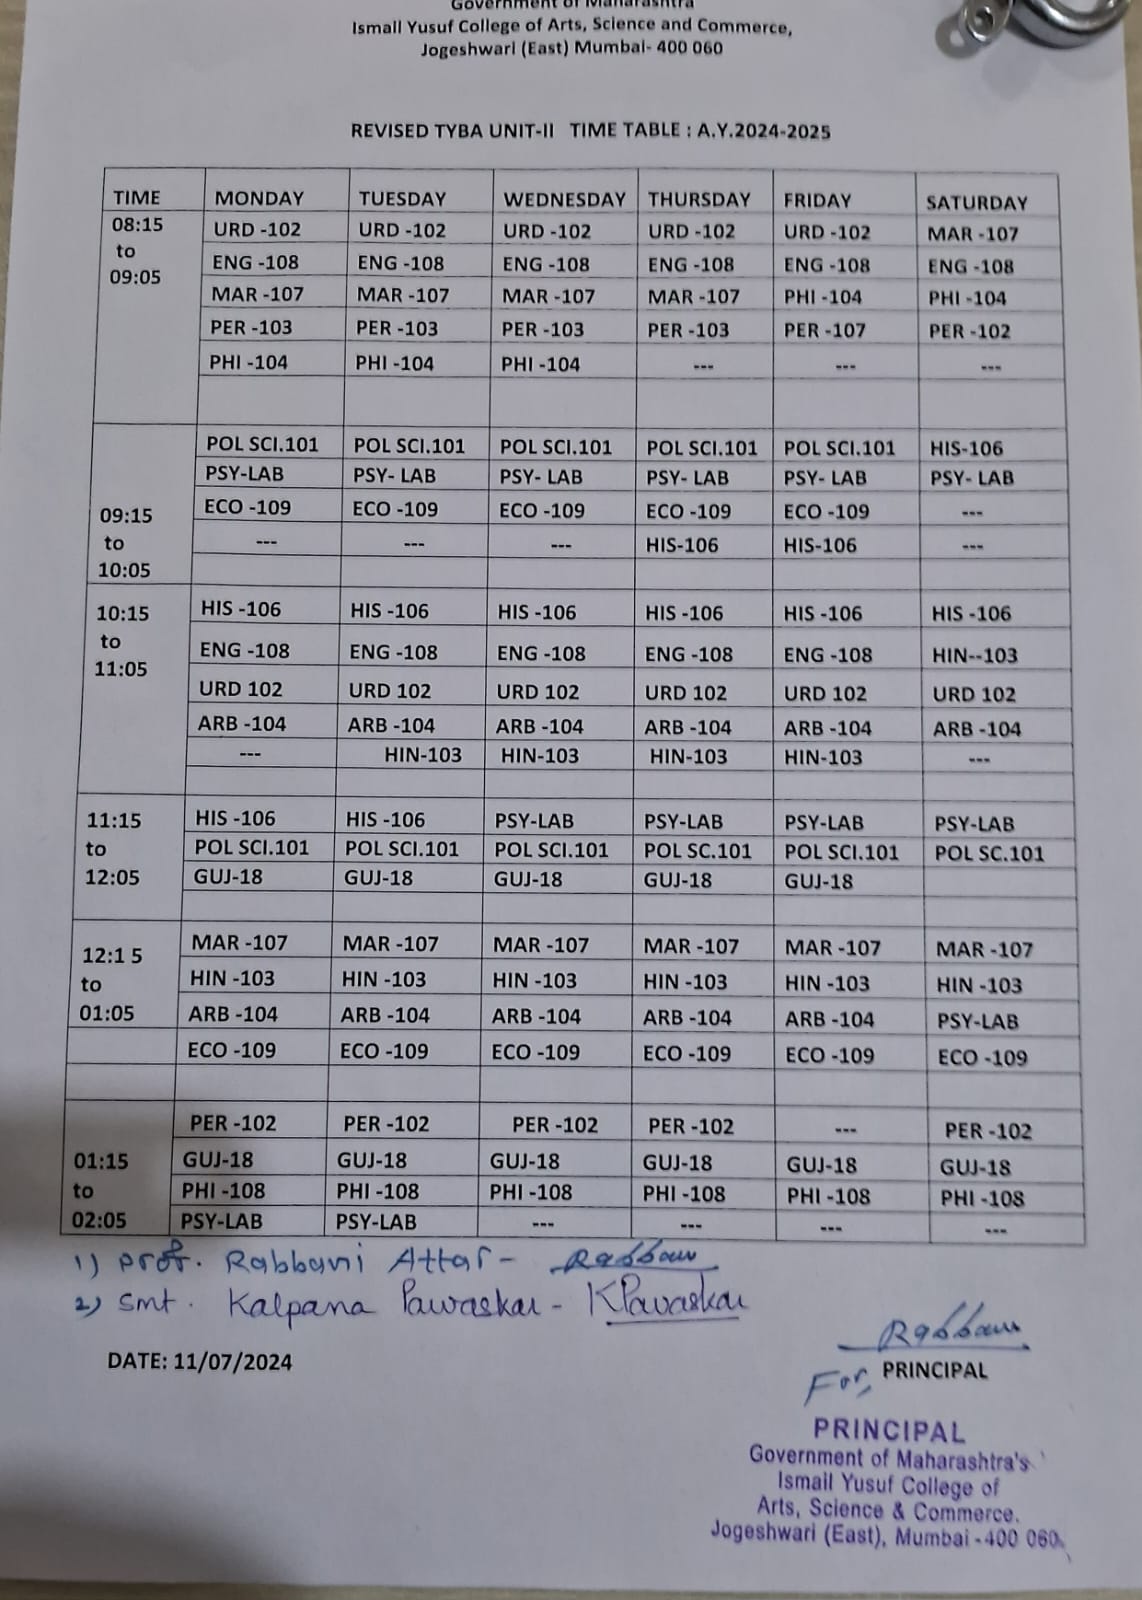 Government of Maharashtra
Ismail Yusuf College of Arts, Science and Commerce,
Jogeshwari (East) Mumbai- 400 060
REVISED TYBA UNIT-II TIME TABLE : A.Y.2024-2025
TIME MONDAY TUESDAY WEDNESDAY THURSDAY FRIDAY SATURDAY
08:15 URD -102 URD -102 URD -102 URD -102 URD -102 MAR -107
to ENG -108 ENG -108 ENG -108 ENG -108 ENG -108 ENG -108
09:05 MAR -107 MAR -107 MAR -107 MAR -107 PHI -104 PHI -104
PER -103 PER -103 PER -103 PER -103 PER -107 PER -102
PHI -104 PHI -104 PHI -104 --- --- ---
POL SCI.101 POL SCI.101 POL SCI.101 POL SCI.101 POL SCI.101 HIS-106
PSY-LAB PSY- LAB PSY- LAB PSY- LAB PSY- LAB PSY- LAB
09:15 ECO -109 ECO -109 ECO -109 ECO -109 ECO -109 ---
to --- --- --- HIS-106 HIS-106 ---
10:05
10:15 HIS -106 HIS -106 HIS -106 HIS -106 HIS -106 HIS -106
to ENG -108 ENG -108 ENG -108 ENG -108 ENG -108 HIN--103
11:05 URD 102 URD 102 URD 102 URD 102 URD 102 URD 102
ARB -104 ARB -104 ARB -104 ARB -104 ARB -104 ARB -104
--- HIN-103 HIN-103 HIN-103 HIN-103 ---
11:15 HIS -106 HIS -106 PSY-LAB PSY-LAB PSY-LAB PSY-LAB
to POL SCI.101 POL SCI.101 POL SCI.101 POL SC.101 POL SCI.101 POL SC.101
12:05 GUJ-18 GUJ-18 GUJ-18 GUJ-18 GUJ-18
12:1 5 MAR -107 MAR -107 MAR -107 MAR -107 MAR -107 MAR -107
to HIN -103 HIN -103 HIN -103 HIN -103 HIN -103 HIN -103
01:05 ARB -104 ARB -104 ARB -104 ARB -104 ARB -104 PSY-LAB
ECO -109 ECO -109 ECO -109 ECO -109 ECO -109 ECO -109
PER -102 PER -102 PER -102 PER -102 --- PER -102
01:15 GUJ-18 GUJ-18 GUJ-18 GUJ-18 GUJ-18 GUJ-18
to PHI -108 PHI -108 PHI -108 PHI -108 PHI -108 PHI -108
02:05 PSY-LAB PSY-LAB --- --- --- ---
1) Prof. Rabbani Attar - Rabbani
2) Smt. Kalpana Pawaskar - KPawaskar
Rabbani
DATE: 11/07/2024
For, PRINCIPAL
PRINCIPAL
Government of Maharashtra's
Ismail Yusuf College of
Arts, Science & Commerce.
Jogeshwari (East), Mumbai -400 060.